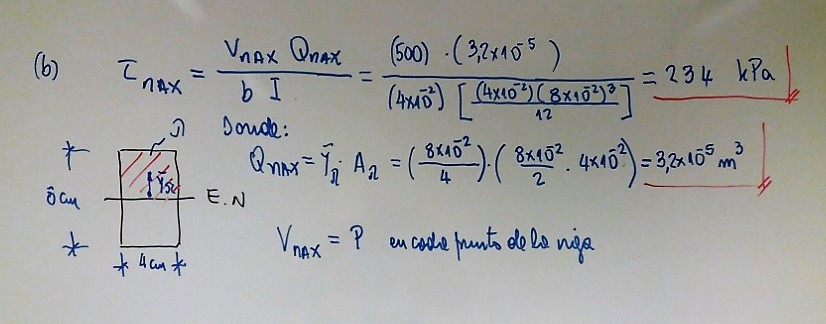 (b) τ_MAX = V_MAX Q_MAX / b I = (500) · (3,2x10^-5) / (4x10^-2) [(4x10^-2)(8x10^-2)^3 / 12] = 234 kPa
Donde:
Q_MAX = Ȳ_Ω · A_Ω = (8x10^-2 / 4) · (8x10^-2 / 2 · 4x10^-2) = 3,2x10^-5 m^3
Ω
Ȳ_Ω
8cm
E.N
4cm
V_MAX = P en cada punto de la viga